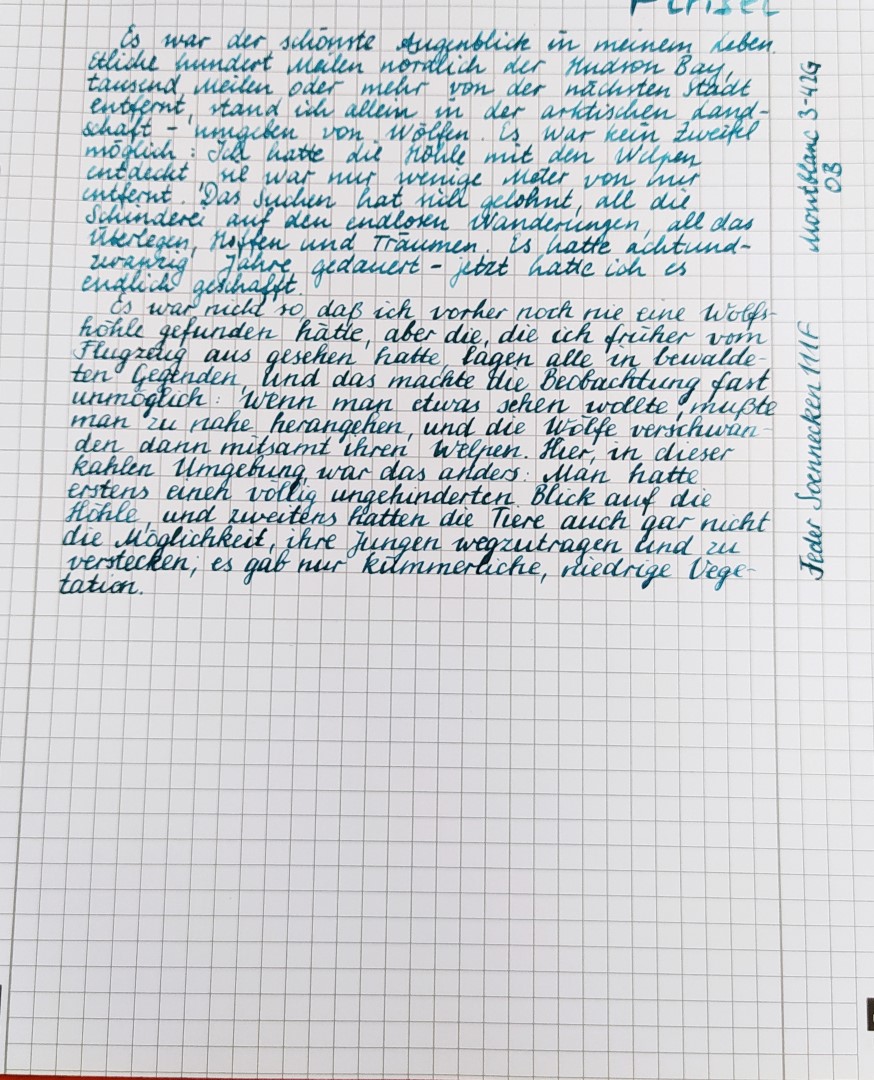 Pinsel
Es war der schönste Augenblick in meinem Leben.
Etliche hundert Meilen nördlich der Hudson Bay,
tausend Meilen oder mehr von der nächsten Stadt
entfernt, stand ich allein in der arktischen Land-
schaft - umgeben von Wölfen. Es war kein Zweifel
möglich: Ich hatte die Höhle mit den Welpen
entdeckt, sie war nur wenige Meter von mir
entfernt. Das Suchen hat sich gelohnt, all die
Schinderei auf den endlosen Wanderungen, all das
Überlegen, Hoffen und Träumen. Es hatte achtund-
zwanzig Jahre gedauert - jetzt hatte ich es
endlich geschafft.
Es war nicht so, daß ich vorher noch nie eine Wolfs-
höhle gefunden hätte, aber die, die ich früher vom
Flugzeug aus gesehen hatte, lagen alle in bewalde-
ten Gegenden, und das machte die Beobachtung fast
unmöglich: Wenn man etwas sehen wollte, mußte
man zu nahe herangehen, und die Wölfe verschwan-
den dann mitsamt ihren Welpen. Hier, in dieser
kahlen Umgebung, war das anders: Man hatte
erstens einen völlig ungehinderten Blick auf die
Höhle, und zweitens hatten die Tiere auch gar nicht
die Möglichkeit, ihre Jungen wegzutragen und zu
verstecken; es gab nur kümmerliche, niedrige Vege-
tation.
Montblanc 3-42G
OB
Feder Soennecken 111F